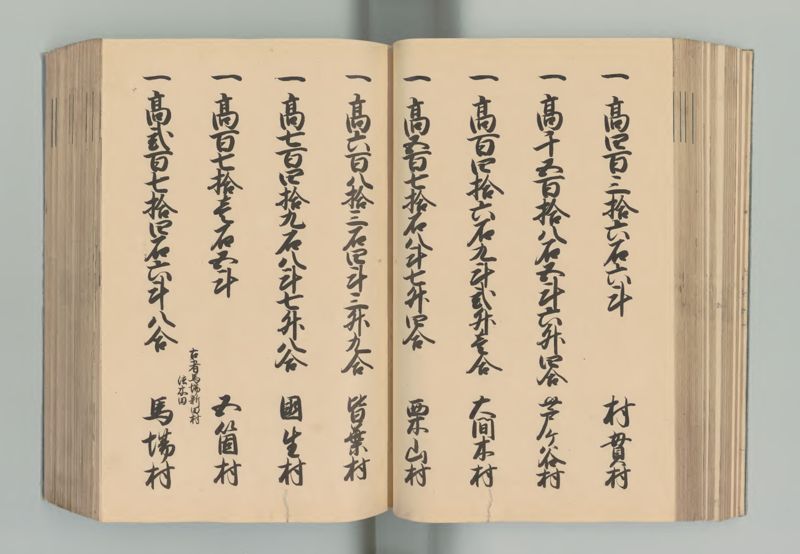 一 高四百三拾六石六斗 村貫村
一 高千五百拾八石五斗六升四合 芦ケ谷村
一 高百四拾六石九斗弐升壱合 大間木村
一 高五百七拾石八斗七升四合 栗山村
一 高六百八拾三石四斗三升九合 皆葉村
一 高七百四拾九石八斗七升八合 國生村
一 高百七拾壱石五斗 五箇村
古者馬場新田村
一 高弐百七拾四石六斗八合 馬場村